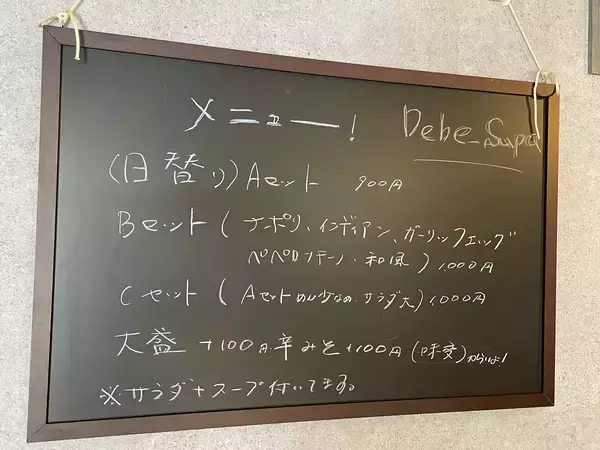 メニュー!
Debe_Supa
(日替り)Aセット 900円
Bセット(ナポリ、インディアン、ガーリックエッグ
ペペロンチーノ、和風)1,000円
Cセット(Aセットめん少なめ.サラダ大)1,000円
大盛 +100円 辛みそ+100円(味変)からいよ!
※サラダ+スープ付いてます。